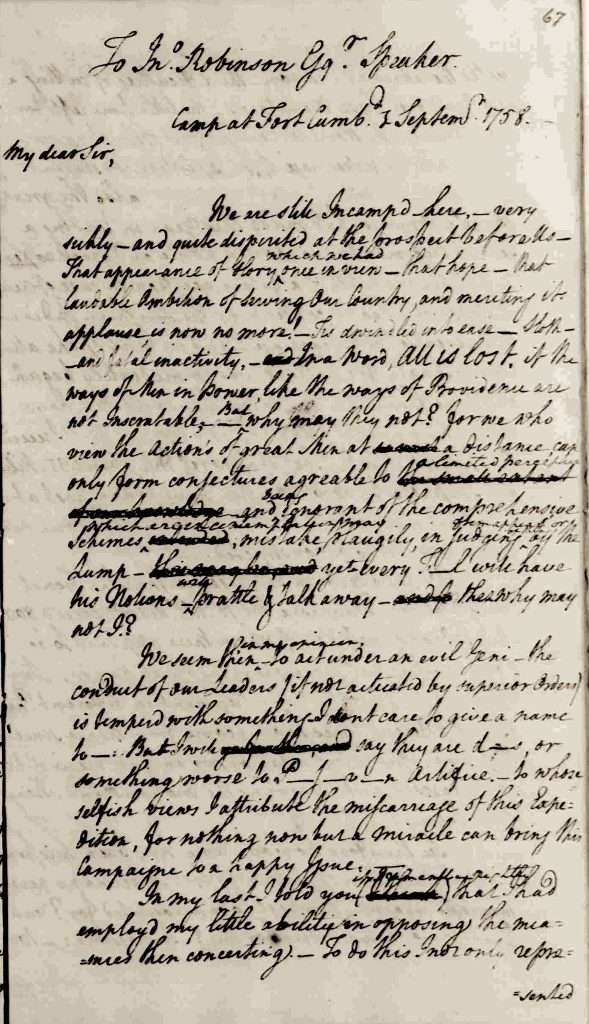 67
To Jno. Robinson Esqr. Speaker.
Camp at Fort Cumbd. 1 Septemr. 1758.
My dear Sir,
We are still Incampd here, – very
sickly – and quite dispirited at the prospect before Us –
which we had
That appearance of Glory once in view – that hope – that
laudable Ambition of Serving Our Country, and meriting its
applause, is now no more! – Tis dwindled into ease – Sloth –
– and fatal inactivity. – and In a Word, All is lost, if the
ways of Men in power, like the ways of Providence are
not Inscrutable; – But why may they not? for we who
view the Action's of great Men at a distance can
only form conjectures agreable to
a limited perception
of our knowledge and being ignorant of the comprehensive
which are in contemplation may
Schemes intended, mistake plaugily, in Judging by the
Lump – yet every F–l will have
his Notions – will prattle & talk away – and so the why may
not I?
in my opinion
We seem then – to act under an evil Geni – the
conduct of our Leaders (if not actuated by superior Orders)
is temperd with something I dont care to give a name
to –: But I will go further, and say they are d–s, or
something worse to P–s–v–n Artifice. – to whose
selfish views I attribute the miscarriage of this Expe=
dition, for nothing now but a miracle can bring this
Campaigne to a happy Issue.
In my last I told you (I think) that I had
employd my little ability in opposing the mea=
=sures then concerting. – To do this I not only repre=
=sented